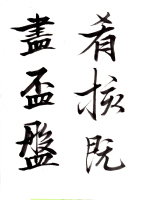 肴核既
盡盃盤